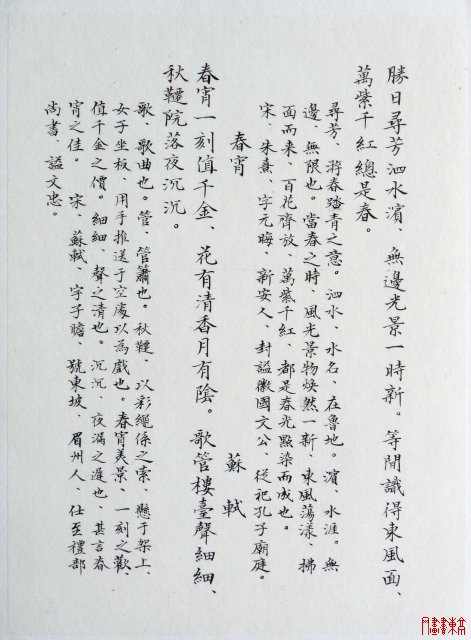 勝日尋芳泗水濱、無邊光景一時新。等閒識得東風面、
萬紫千紅總是春。
尋芳、游春踏青之意。泗水、水名、在魯地。濱、水涯。無
邊、無限也。當春之時、風光景物煥然一新、東風蕩漾、拂
面而来、百花齊放、萬紫千紅、都是春光點染而成也。
宋、朱熹、字元晦、新安人、封謚徽國文公、從祀孔子廟庭。
春宵　蘇軾
春宵一刻值千金、花有清香月有陰。歌管樓臺聲細細、
秋韆院落夜沉沉。
歌、歌曲也。管、管簫也。秋韆、以彩繩係之索、懸于架上、
女子坐板、用手推送于空處以為戲也。春宵美景、一刻之歡、
值千金之價。細細、聲之清也。沉沉、夜漏之遲也、甚言春
宵之佳。　宋、蘇軾、字子瞻、號東坡、眉州人、仕至禮部
尚書、謚文忠。